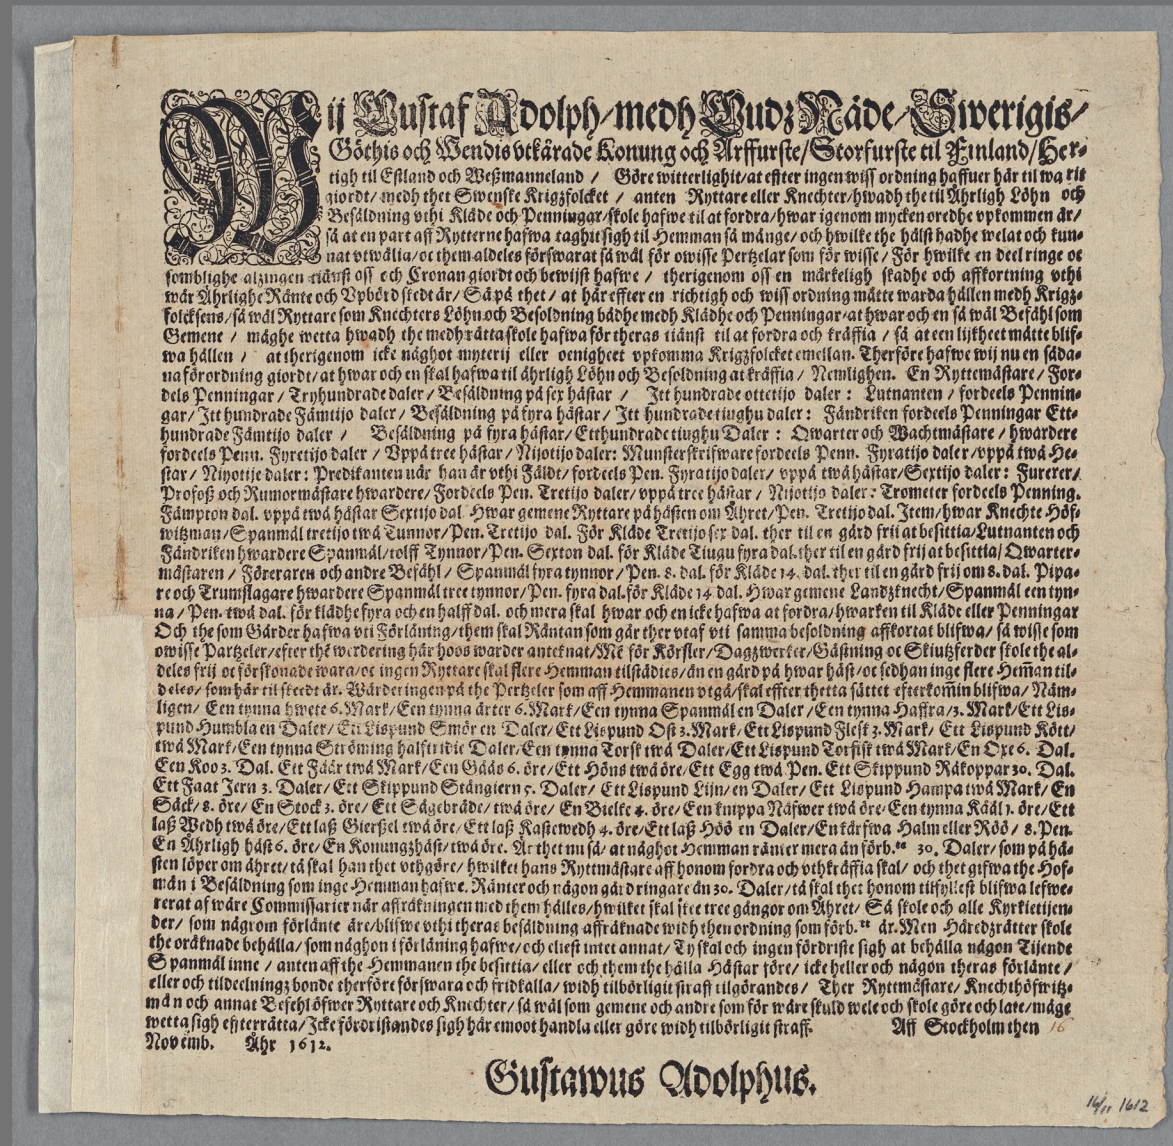 Wij Gustaf Adolph/medh Gudz Nåde/Swerigis/
Göthis och Wendis vtkårade Konung och Arffurste/Storfurste til Finland/Her-
tigh til Estland och Weßmanneland / Göre witterlighit/at effter ingen wiss ordning haffuer här til wa rit
giordt/medh thet Swenske Krigzfolcket / anten Ryttare eller Knechter/hwadh the til Åhrligh Löhn och
Besåldning vthi Kläde och Penningar/skole hafwe til at fordra/hwar igenom mycken oredhe vpkommen är/
så at en part aff Rytterne hafwa taghit sigh til Hemman så månge/och hwilke the hälst hadhe welat och kun-
nat vtwälia/oc them aldeles förswarat så wäl för owisse Pertzelar som för wisse/För hwilke en deel ringe oc
somblighe alzingen tiänst oss och Cronan giordt och bewijst hafwe / therigenom oss en märkeligh skadhe och affkortning vthi
wår Åhrlighe Ränte och Vpbörd stedt är/Så på thet/at här effter en richtigh och wiss ordning måtte warda hållen medh Krigz-
folcksens/så wäl Ryttare som Knechters Löhn och Besoldning bådhe medh Klädhe och Penningar/at hwar och en så wäl Befähl som
Gemene / måghe wetta hwadh the medh rätta skole hafwa för theras tiänst til at fordra och kräffia / så at een lijkheet måtte blif-
wa hållen / at therigenom icke någhot myterij eller oenigheet vpkomma Krigzfolcket emellan. Therföre hafwe wij nu en såda-
na förordning giordt/at hwar och en skal hafwa til åhrligh Löhn och Besoldning at kräffia / Nemlighen. En Ryttemästare/For-
dels Penningar/Tryhundrade daler/Besåldning på sex hästar / Itt hundrade ottetijo daler: Lutnanten/fordeels Pennin-
gar/Itt hundrade Fämtijo daler/Besåldning på fyra hästar/Itt hundrade tiughu daler: Fändriken fordeels Penningar Ett-
hundrade Fämtijo daler / Besåldning på fyra hästar/Etthundrade tiughu Daler: Qwarter och Wachtmästare/hwardere
fordeels Penn. Fyretijo daler/Vppå tree hästar/Nijotijo daler: Munsterskrifware fordeels Penn. Fyratijo daler/vppå twå He-
star/Nijotije daler: Predikanten når han är vthi Fäldt/fordeels Pen. Fyratijo daler/vppå twå hästar/Sextijo daler: Furerer/
Profoß och Rumormästare hwardere/Fordeels Pen. Tretijo daler/vppå tree hästar / Nijotijo daler: Trometer fordeels Penning.
Fämpton dal. vppå twå hästar Sextijo dal. Hwar gemene Ryttare på hästen om Åhret/Pen. Tretijo dal. Item/hwar Knechte Höf-
witzman/Spanmål tretijo twå Tunnor/Pen. Tretijo dal. För Kläde Tretijo sex dal. ther til en gård frij at besittia/Lutnanten och
Fändriken hwardere Spanmål/tolff Tynnor/Pen. Sexton dal. för Kläde Tiugu fyra dal. ther til en gård frij at besittia/Qwarter-
mästaren / Föreraren och andre Befähl/Spanmål fyra tynnor/Pen. 8. dal. för Kläde 14. dal. ther til en gård frij om 8. dal. Pipa-
re och Trumslagare hwardere Spanmål tree tynnor/Pen. fyra dal. för Kläde 14 dal. Hwar gemene Landzknecht/Spanmål een tyn-
na/Pen. twå dal. för klädhe fyra och en halff dal. och mera skal hwar och en icke hafwa at fordra/hwarken til Kläde eller Penningar
Och the som Gårder hafwa vti Förläning/them skal Räntan som går ther vtaf vti samma besoldning affkortat blifwa/så wisse som
owisse Partzeler/efter thē werdering här hoos warder antecknat/Mē för Körsler/Dagzwerker/Gästning oc Skiutzferder skole the al-
deles frij oc förskonade wara/oc ingen Ryttare skal flere Hemman tilstädies/än en gård på hwar häst/oc sedhan inge flere Hem̄an til-
deles/som här til skeedt är. Wärderingen på the Pertzeler som aff Hemmanen vtgå/skal effter thetta sättet efterkom̄in blifwa/Näm-
ligen/Een tynna hwete 6. Mark/Een tynna ärter 6. Mark/Een tynna Spanmål en Daler/Een tynna Haffra/3. Mark/Ett Lis-
pund Humbla en Daler/Ett Lispund Smör en Daler/Ett Lispund Ost 3. Mark/Ett Lispund Flesk 3. Mark/Ett Lispund Kött/
twå Mark/Een tynna Ströming halfftridie Daler/Een tynna Torsk twå Daler/Ett Lispund Torfisk twå Mark/En Oxe 6. Dal.
Een Koo 3. Dal. Ett Fåår twå Mark/Een Gåås 6. öre/Ett Höns twå öre/Ett Egg twå Pen. Ett Skippund Råkoppar 30. Dal.
Ett Faat Jern 3. Daler/Ett Skippund Stångiern 5. Daler/Ett Lispund Lijn/en Daler/Ett Lispund Hampa twå Mark/En
Säck/8. öre/En Stock 3. öre/Ett Sågebräde/twå öre/En Bielke 4. öre/Een knippa Näfwer twå öre/Een tynna Kååll 1. öre/Ett
laß Wedh twå öre/Ett laß Gierßel twå öre/Ett laß Kastewedh 4. öre/Ett laß Höö en Daler/En kärfwa Halm eller Röö/8. Pen.
En Åhrligh häst 6. öre/En Konungzhäst/twå öre. Är thet nu så/at någhot Hemman ränter mera än förb.te 30. Daler/som på hä-
sten löper om åhret/tå skal han thet vthgöre/hwilket hans Ryttmästare aff honom fordra och vthkräffia skal/och thet gifwa the Hof-
män i Besåldning som inge Hemman hafwe. Ränter och någon gård ringare än 30. Daler/tå skal thet honom tilfyllest blifwa lefwe-
rerat af wåre Commissarier när affräkningen med them hålles/hwilket skal skee tree gångor om Åhret/Så skole och alle Kyrkietijen-
der/som någrom förlänte äre/blifwe vthi theras besåldning affräknade widh then ordning som förb.te är. Men Häredzrätter skole
the oräknade behålla/som någhon i förläning hafwe/och eliest intet annat/Ty skal och ingen fördriste sigh at behålla någon Tijende
Spanmål inne/anten aff the Hemmanen the besittia/eller och them the hålla Hästar före/icke heller och någon theras förlänte/
eller och tildeelningz bonde therföre förswara och fridkalla/widh tilbörligit straff tilgörandes/ Ther Ryttmästare/Knechthöfwitz-
män och annat Befehl öfwer Ryttare och Knechter/så wäl som gemene och andre som för wåre skuld wele och skole göre och late/måge
wetta sigh efterrätta/Icke fördristandes sigh här emoot handla eller göre widh tilbörligit straff. Aff Stockholm then 16
Novemb. Åhr 1612.
Gustawus Adolphus.
16/11 1612